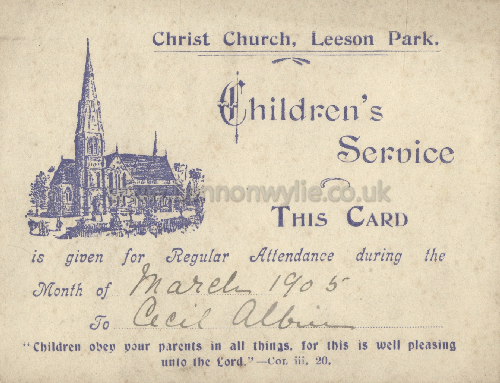 Christ Church, Leeson Park.
Children's
Service
THIS CARD
is given for Regular Attendance during the
Month of March 1905
To Cecil Albin
"Children obey your parents in all things, for this is well pleasing
unto the Lord."—Col. iii. 20.